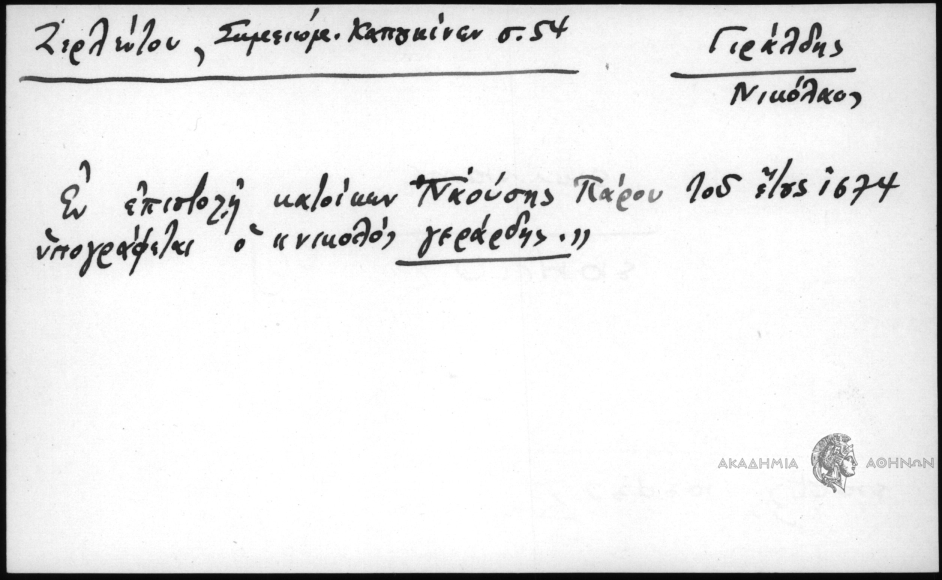 Ζερλέντου, Σημειώμ. Καπουκίνων σ. 54
Γιράλδης
Νικόλαος
Ἐν ἐπιστολῇ κατοίκων Ναούσης Πάρου τοῦ ἔτους 1674
ὑπογράφεται ὁ «νικολός γεράρδης.»
ΑΚΑΔΗΜΙΑ ΑΘΗΝΩΝ